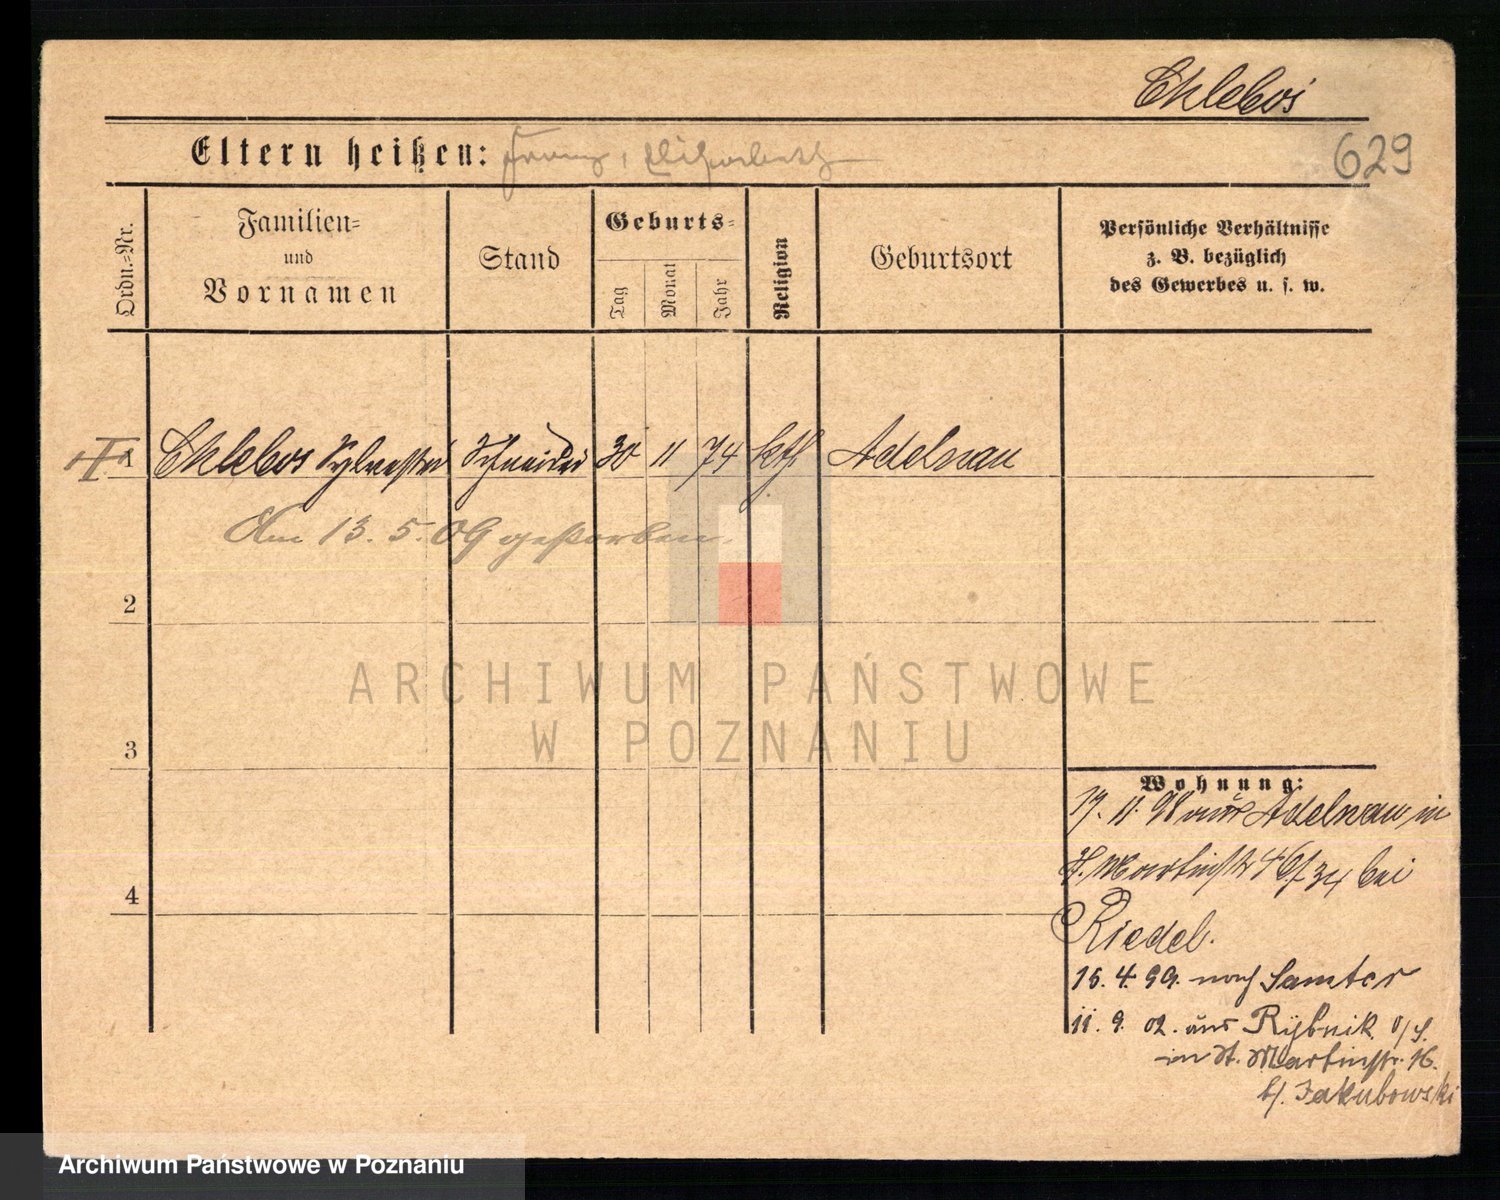 Chlebos
Eltern heißen: Franz, Elisabeth
629
Ordn.-Nr.
Familien-
und
Vornamen
Stand
Geburts-
Tag
Monat
Jahr
Religion
Geburtsort
Persönliche Verhältnisse
z. B. bezüglich
des Gewerbes u. s. w.
1 Chlebos Sylvester Schneider 30 11 74 kth Adelnau
Am 13. 5. 09 gestorben.
2
3
4
ARCHIWUM PAŃSTWOWE
W POZNANIU
Wohnung:
17. 11. 98 aus Adelnau in
St. Martinstr 46/34 bei
Riedel.
15. 4. 99. nach Samter
11. 9. 02. aus Rybnik O/S.
in St. Martinstr. 16.
b/. Jakubowski
Archiwum Państwowe w Poznaniu